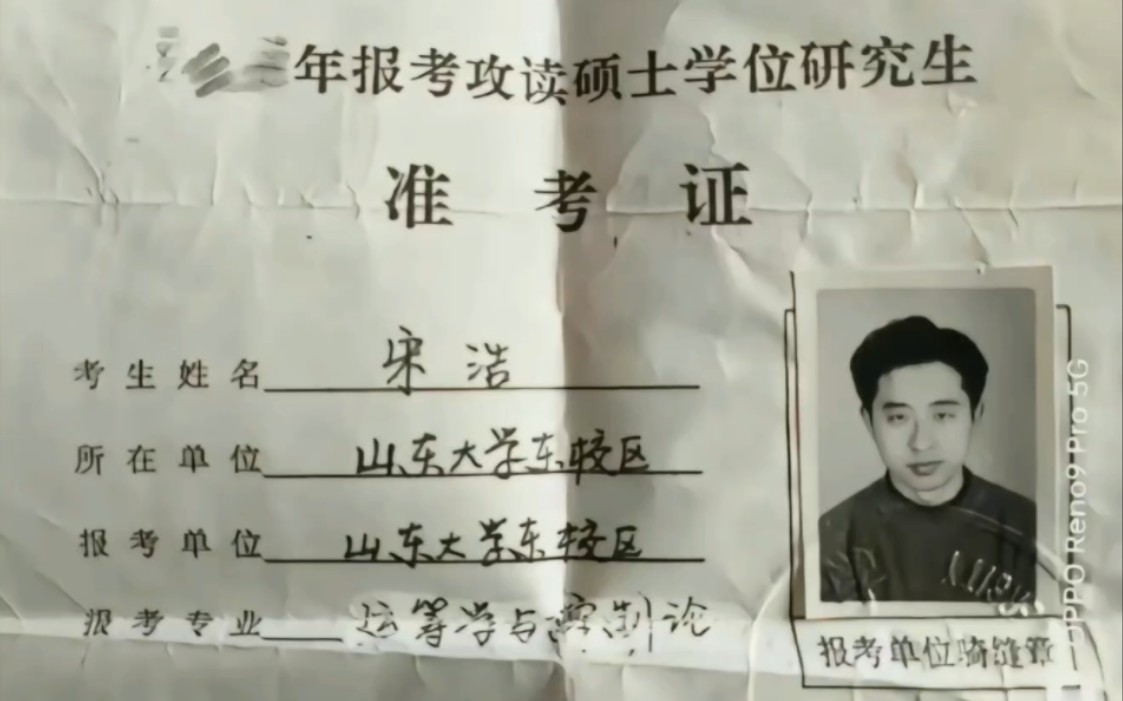 年报考攻读硕士学位研究生
准考证
考生姓名 宋浩
所在单位 山东大学东校区
报考单位 山东大学东校区
报考专业 运筹学与控制论
报考单位骑缝章
OPPO Reno9 Pro 5G